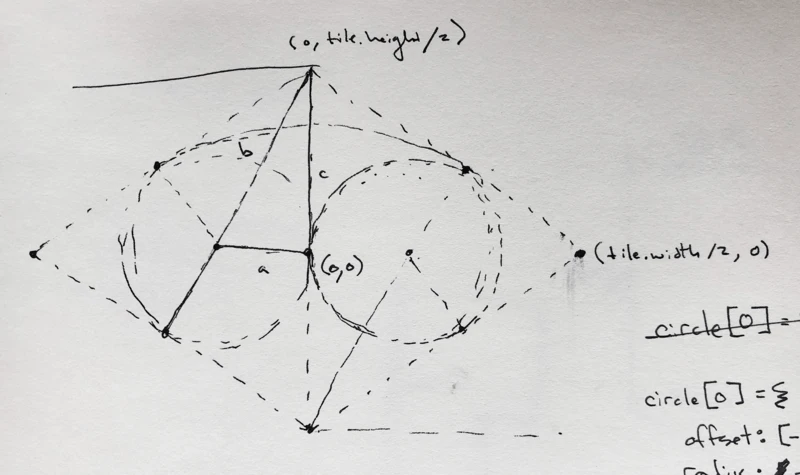 (0, tile.height/2)
b
c
a
(0,0)
(tile.width/2, 0)
circle[0] =
circle[0] = {
offset: [-
radius: